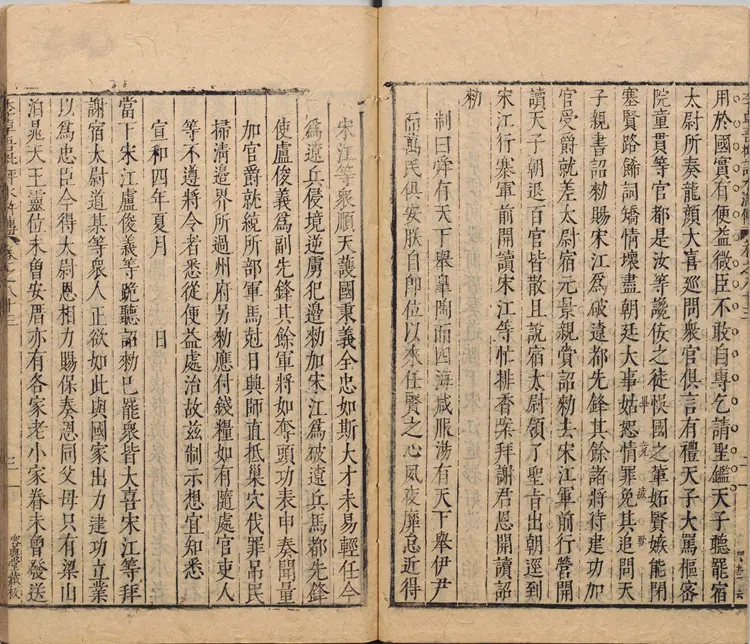 用於國實有便益微臣不敢自專乞請聖鑑天子聽罷宿
太尉所奏龍顏大喜巡問衆官俱言有禮天子大罵樞密
院童貫等官都是汝等讒佞之徒悞國之輩妬賢嫉能閉
塞賢路餙詞矯情壞盡朝廷大事姑恕情罪免其追問天
子親書詔勑賜宋江爲破遼都先鋒其餘諸將待建功加
官受爵就差太尉宿元景親賫詔勑去宋江軍前行營開
讀天子朝退百官皆散且說宿太尉領了聖旨出朝逕到
宋江行寨軍前開讀宋江等忙排香案拜謝君恩開讀詔
勑
制曰舜有天下舉皐陶而四海咸服湯有天下舉伊尹
而萬民俱安朕自即位以來任賢之心夙夜靡怠近得
宋江等衆順天護國秉義全忠如斯大才未易輕任今
爲遼兵侵境逆虜犯邊勑加宋江爲破遼兵馬都先鋒
使盧俊義爲副先鋒其餘軍將如奪頭功表申奏聞量
加官爵就統所部軍馬尅日興師直抵巢穴伐罪吊民
掃清邊界所過州府另勑應付錢糧如有隨處官吏人
等不遵將令者悉從便益處治故兹制示想宜知悉
宣和四年夏月 日
當下宋江盧俊義等跪聽詔勑已罷衆皆大喜宋江等拜
謝宿太尉道某等衆人正欲如此與國家出力建功立業
以爲忠臣今得太尉恩相力賜保奏恩同父母只有梁山
泊晁天王靈位未曾安厝亦有各家老小家眷未曾發送
李卓吾批評水滸傳 卷之八十三 三 容與堂藏板